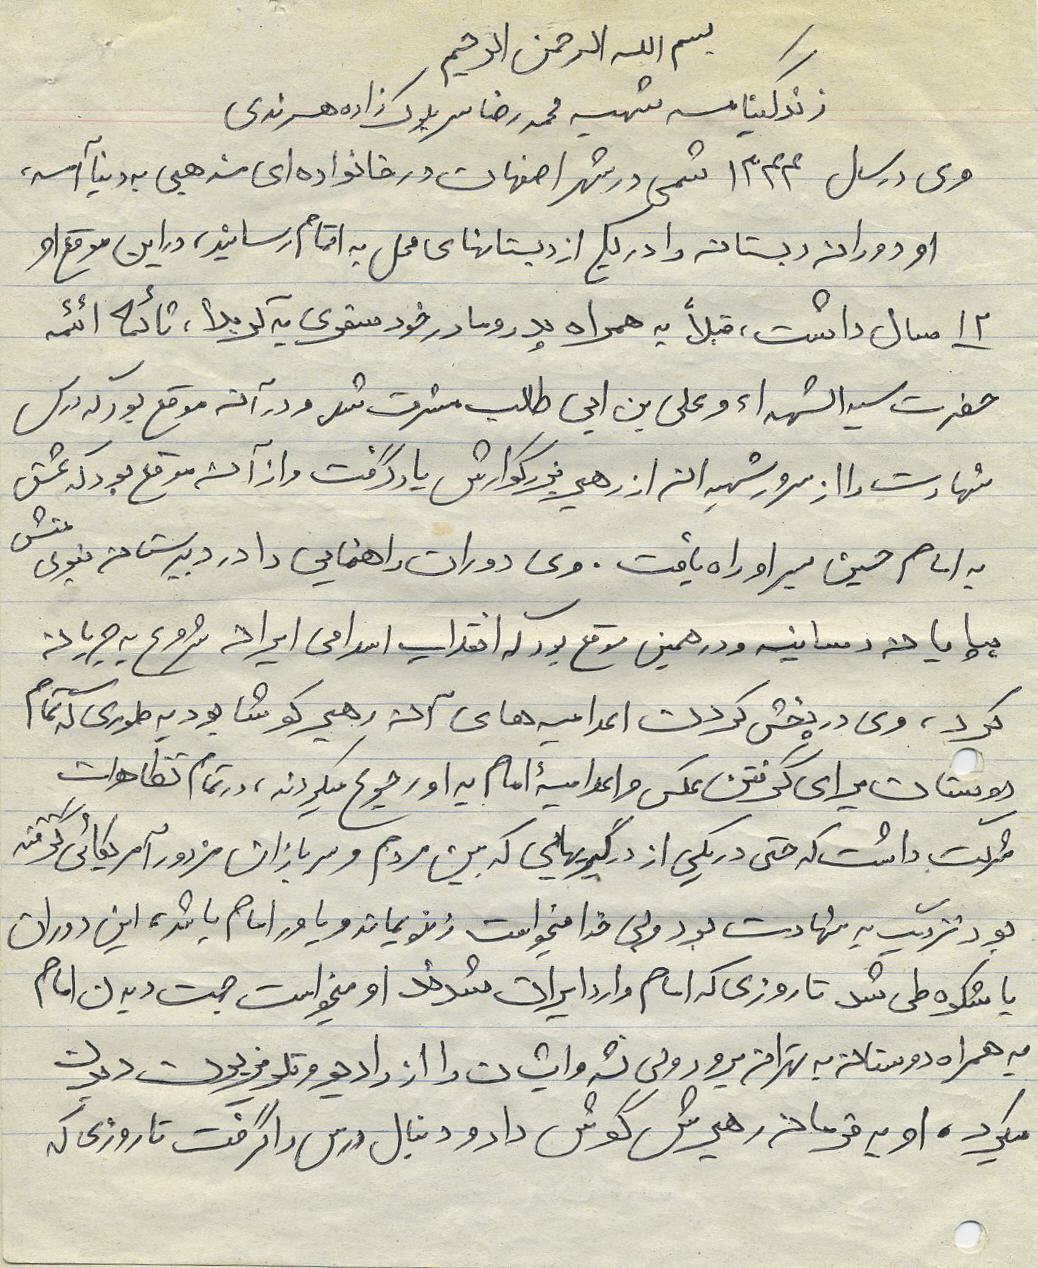 بسم الله الرحمن الرحیم
زندگینامه شهید محمد رضا سربلوک زاده هرندی
وی در سال ۱۳۴۴ شمسی در شهر اصفهان در خانواده ای مذهبی به دنیا آمد،
او دوران دبستان را در یکی از دبستانهای محل به اتمام رسانید، در این موقع او
۱۲ سال داشت، قبلاً به همراه پدر و مادر خود سفری به کربلا،
حضرت سید الشهداء و علی بن ابی طالب مشرف شد و در آن موقع بود که درس
شهادت را از سرور شهیدان از رهبر بزرگوارش یاد گرفت و از آن موقع بود که عشق
به امام حسین سر او راه یافت . وی دوران راهنمایی را در دبیرستان نبوی منش
بپایان رسانید و در همین موقع بود که انقلاب اسلامی ایران شروع به جریان
کرد، وی در پخش کردن اعلامیه های آن رهبر کوشا بود به طوری که تمام
دوستان برای گرفتن عکس و اعلامیهٔ امام به او رجوع میکردند، در تمام تظاهرات
شرکت داشت که حتی در یکی از درگیریهایی که بین مردم و سربازان مزدور آمریکائی گرفته شد
بود نزدیک به شهادت بود ولی خدا میخواست زنده بماند و یاور امام باشد، این دوران
با شکوه طی شد تا روزی که امام وارد ایران شدند او میخواست جهت دیدن امام
به همراه دوستان به تهران برود ولی نشد و ایشان را از رادیو و تلویزیون دیدن
میکرد، او به فرمان رهبرش گوش داد و دنبال درس را گرفت تا روزی که